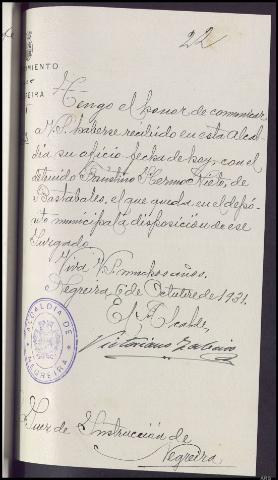 22
MIENTO
EIRA
Tengo el honor de comunicar
a V.S. haberse recibido en esta Alcal-
dia su oficio fecha de hoy, con el
detenido Faustino Hermo Nieto, de
Bastabales, el que queda en el depó-
sito municipal a disposición de ese
Juzgado.
Viva V.S. muchos años.
Negreira 6 de Octubre de 1931.
El Alcalde,
Victoriano
ALCALDIA DE
NEGREIRA
Juez de Instrucción de
Negreira